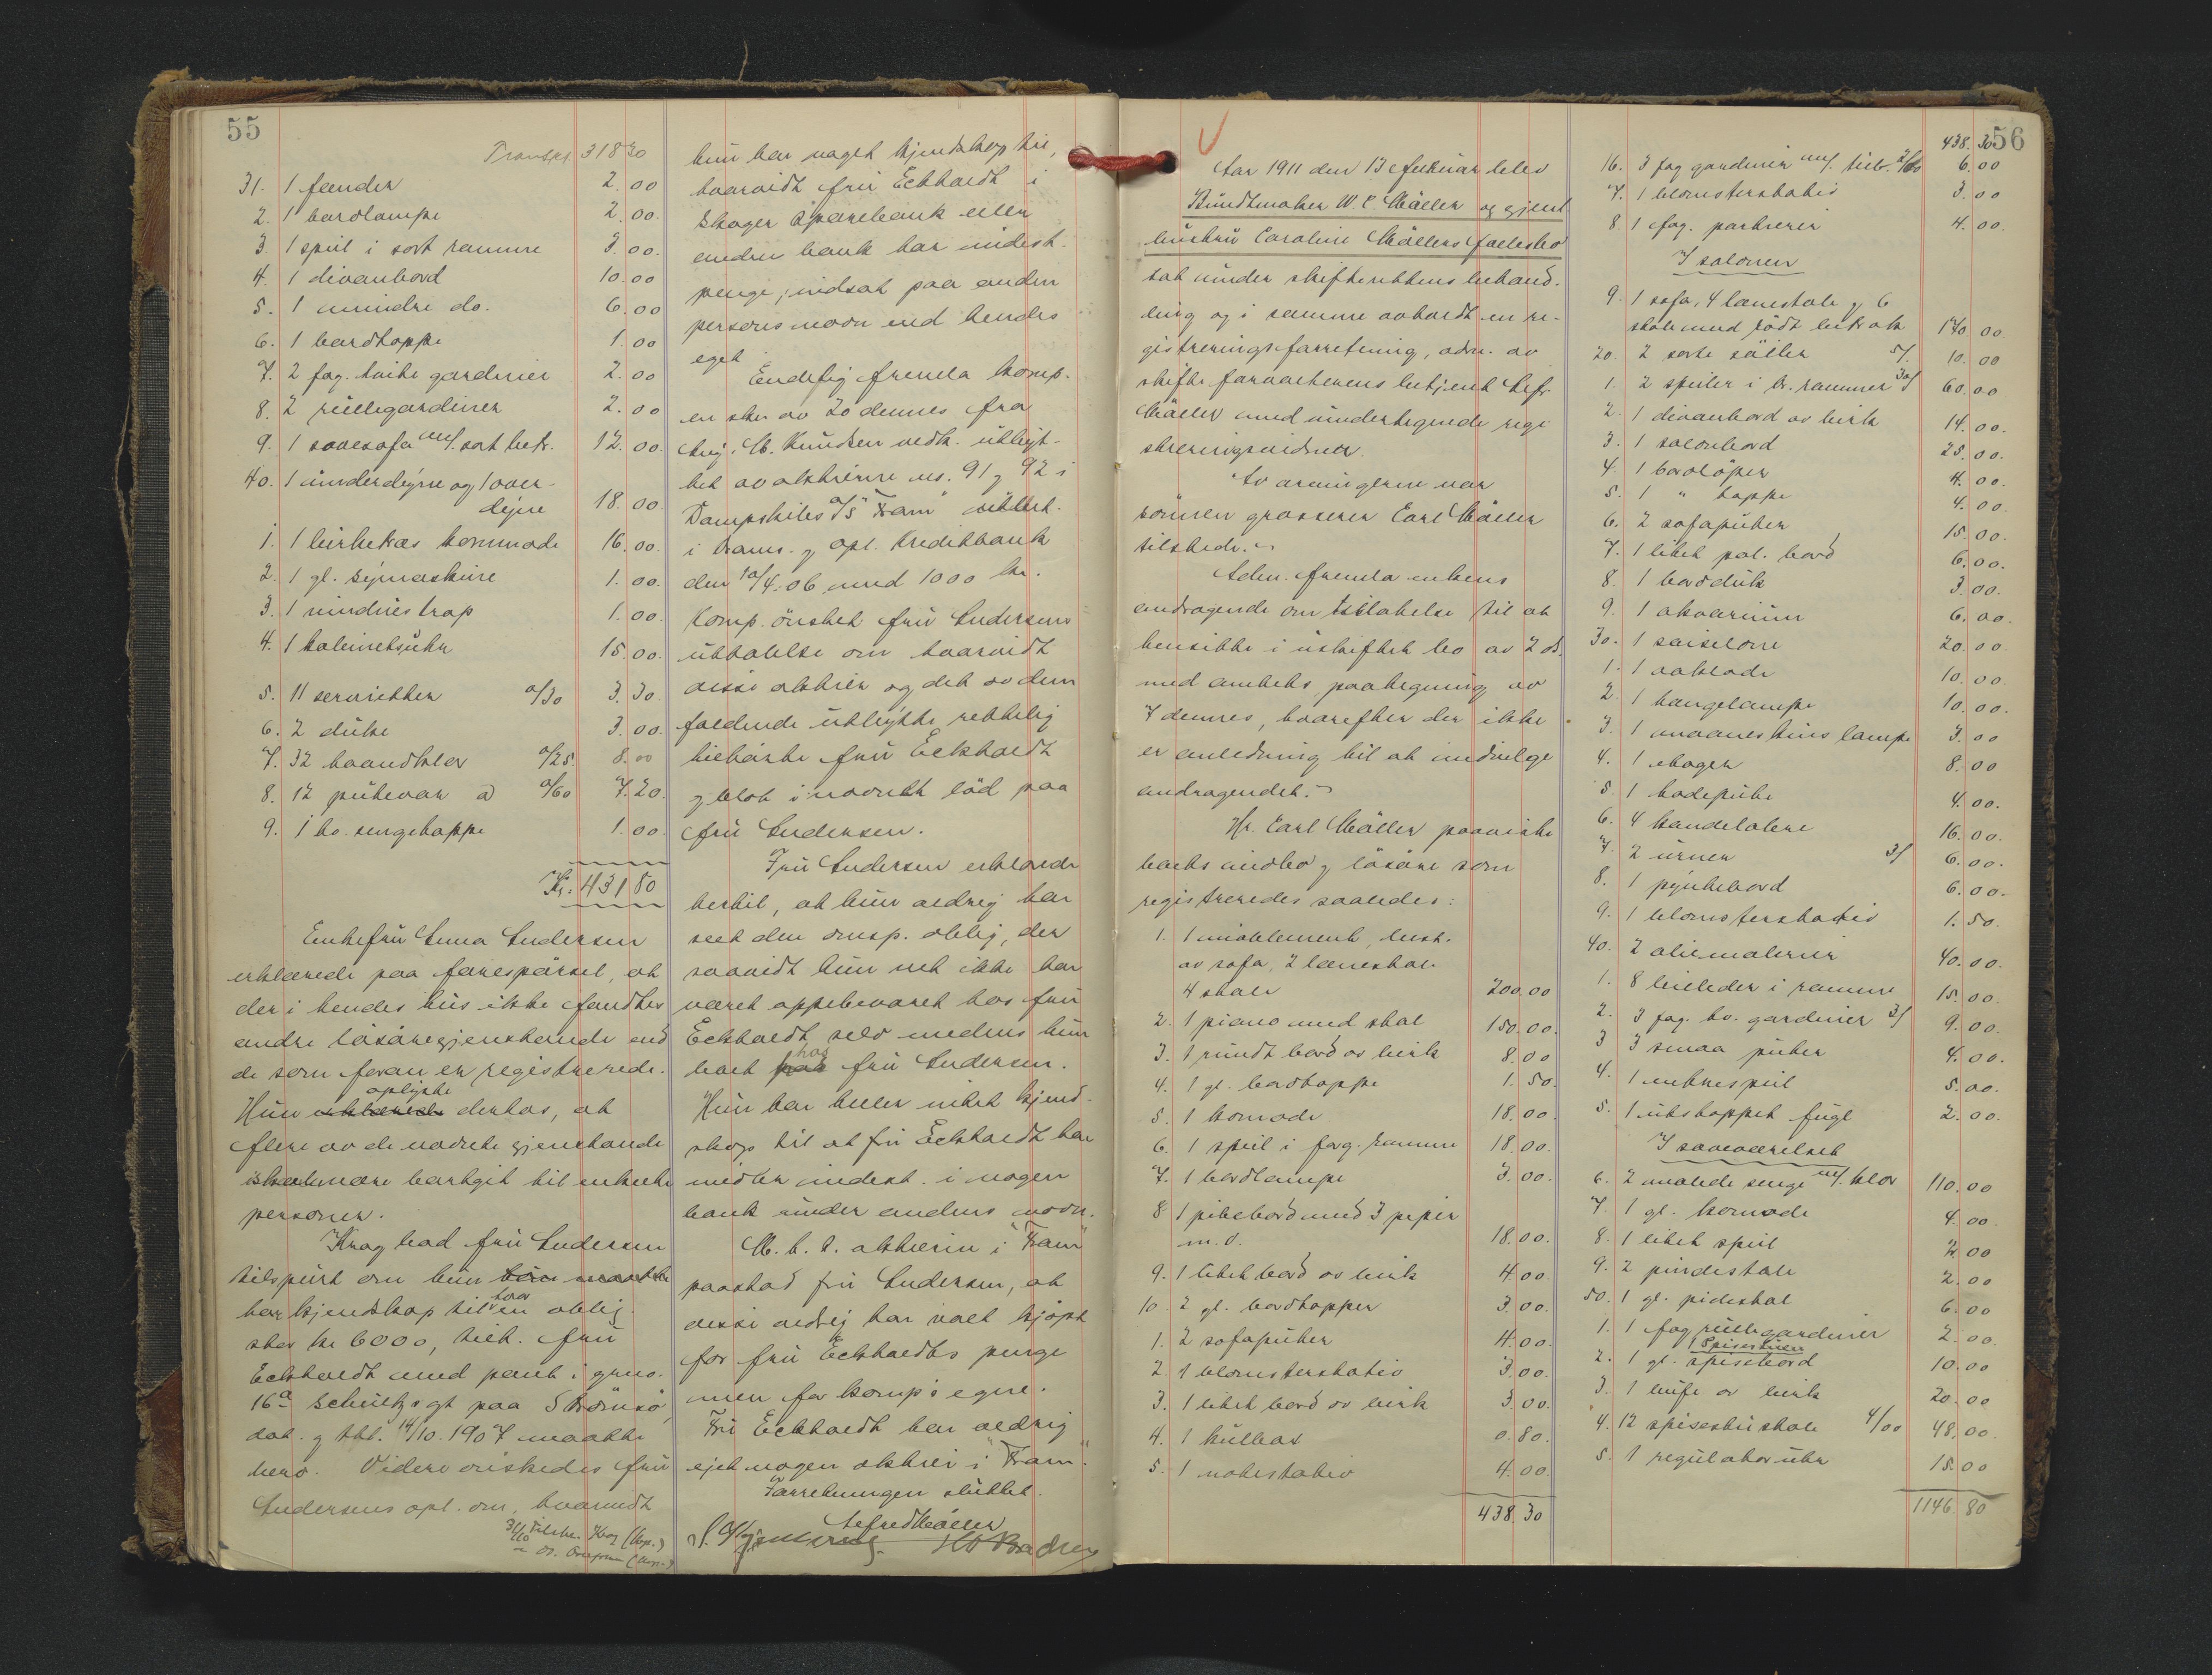 55
Transp. 318 30
31. 1 fender 2.00
2. 1 bordlampe 2.00.
3. 1 speil i sort ramme 3.00.
4. 1 divanbord 10.00
5. 1 mindre do. 6.00
6. 1 bordteppe 1.00
7. 2 fag. hvite gardiner 2.00
8. 2 rullegardiner 2.00
9. 1 sovesofa m/. sort betr. 12.00.
40. 1 underdyne og 1 over-
dyne 18.00.
1. 1 birkekræs kommode 16.00.
2. 1 gl. symaskine 1.00.
3. 1 vindustrap 1.00.
4. 1 kabinetsuhr 15.00.
5. 11 servietter a/30 3.30.
6. 2 duke 3.00.
7. 32 haandklær a/25. 8.00
8. 12 putevar a a/60 7.20.
9. 1 hv. sengeteppe 1.00.
Kr. 431 80
Enkefru Anna Andersen
erklærede paa forespørsel, at
der i hendes hus ikke fandtes
andre løsøregjenstande end
de som foran er registrerede.
oplyste
Hun erklærede derhos, at
flere av de nævnte gjenstande
skal være bortgit til enkelte
personer.
Krag bad fru Andersen
tilspurt om hun
har kjendskap til en oblig.
stor kr 6000, tilh. fru
Eckholdt med pant i grno.
16a Schultzsgt paa Strømsø,
dat. g tbl. 14/10.1907 maatte
bero. Videre ønskedes fru
Andersens opl. om, hvorvidt
hun har noget kjendskap til,
hvorvidt fru Eckholdt i
Skoger Sparebank eller
anden bank har indest.
penge, indsat paa anden
persons navn end hendes
eget
Endelig fremla komp.
en skr. av 20 dennes fra
Aug. M. Knudsen vedk. utbyt-
tet av aktierne no. 91 g 92 i
Dampskibs a/s "Fram" utbet.
i Drams. g Opl. Kreditbank
den 10/4.06 med 1000 kr.
Komp. ønsket fru Andersens
uttalelse om hvorvidt
disse aktier og det av dem
faldende utbytte rettelig
tilhørte fru Eckholdt
g blot i navnet lød paa
fru Andersen.
Fru Andersen erklærte
hertil, at hun aldrig har
seet den omsp. oblig, der
saavidt hun vet ikke har
været oppebevaret hos fru
Eckholdt selv medens hun
hos
boet fru Andersen.
Hun har heller intet kjend-
skap til at fru Eckholdt har
midler indest. i nogen
bank under andens navn.
M. h. t. aktierne i "Fram"
paastod fru Andersen, at
disse aldrig har vært kjøpt
for fru Eckholdts penge
men for komp's egne.
Fru Eckholdt har aldrig
ejet nogen aktier i "Fram".
Forretningen sluttet.
Alfred Møller
56
Aar 1911 den 13 februar blev
Bundtmaker W. C. Møller og gjenl.
hustru Caroline Møllers fællesbo
tat under skifterettens behand-
ling og i samme avholdt en re-
gistreringsforretning, adm. av
skifteforvalterens betjent Alfr.
Møller med undertegnede regi-
streringsvidner.
Av arvingerne var
sønnen grosserer Carl Møller
tilstede.
Adm. fremla enkens
andragende om tilladelse til at
hensitte i uskiftet bo av 2 ds.
med ambets paategning av
7 dennes, hvorefter der ikke
er anledning til at indvilge
andragendet.
Hr. Carl Møller paaviste
boets indbo g løsøre som
registreredes saaledes:
1. 1 møblement, best.
av sofa, 2 lænestole
4 stole 200.00
2. 1 piano med stol 150.00.
3. 1 rundt bord av birk 8.00
4. 1 gl. bordteppe 1.50.
5. 1 komode 18.00.
6. 1 speil i forg. ramme 18.00.
7. 1 bordlampe 3.00.
8 1 pibebord med 3 piper
m.v. 18.00.
9. 1 litet bord av birk 4.00.
10. 2 gl. bordtepper 3.00.
1. 2 sofaputer 4.00.
2. 1 blomsterstativ 3.00.
3. 1 litet bord av birk 3.00.
4. 1 kulkas 0.80.
5. 1 notestativ 4.00.
438.30
438.30
16. 3 fag gardiner m/. tilb. 2/00 6.00
7. 1 blomsterstativ 3.00
8. 1 fag. portierer 4.00.
I salonen
9. 1 sofa, 4 lænestole g 6
stole med rødt betræk 170.00.
20. 2 sorte søiler 5/. 10.00
1. 2 speiler i br. rammer 30/ 60.00
2. 1 divanbord av birk 14.00.
3. 1 salonbord 25.00.
4. 1 bordløper 4.00.
5. 1 " teppe 4.00.
6. 2 sofaputer 15.00.
7. 1 litet pol. bord 6.00.
8. 1 bordduk 3.00.
9. 1 akvarium 6.00.
30. 1 saiselone 20.00
1. 1 vaklode 10.00.
2. 1 hængelampe 10.00.
3. 1 maaneskins lampe 3.00
4. 1 etager 8.00
5. 1 hodepute 4.00.
6. 4 kandelabre 16.00.
7. 2 urner 3/ 6.00.
8. 1 pyntebord 6.00.
9. 1 blomsterstativ 1.50.
40. 2 oliemalerier 40.00.
1. 8 billeder i ramme 15.00.
2. 3 fag. hv. gardiner 3/ 9.00.
3 3 smaa puter 4.00.
4. 1 entrespeil 5.00.
5. 1 utstoppet fugl 2.00.
I soveværelset
6. 2 malede senge m/. klær 110.00
7. 1 gl. komode 4.00.
8. 1 litet speil 2.00
9. 2 pindestole 2.00
50. 1 gl. pidestal 6.00
1. 1 fag rullegardiner 2.00.
I Spisestuen
2. 1 gl. spisebord 10.00
3. 1 bufe av birk 20.00
4. 12 spisestuestole 4/00 48.00.
5. 1 regulatoruhr 15.00
1146.80